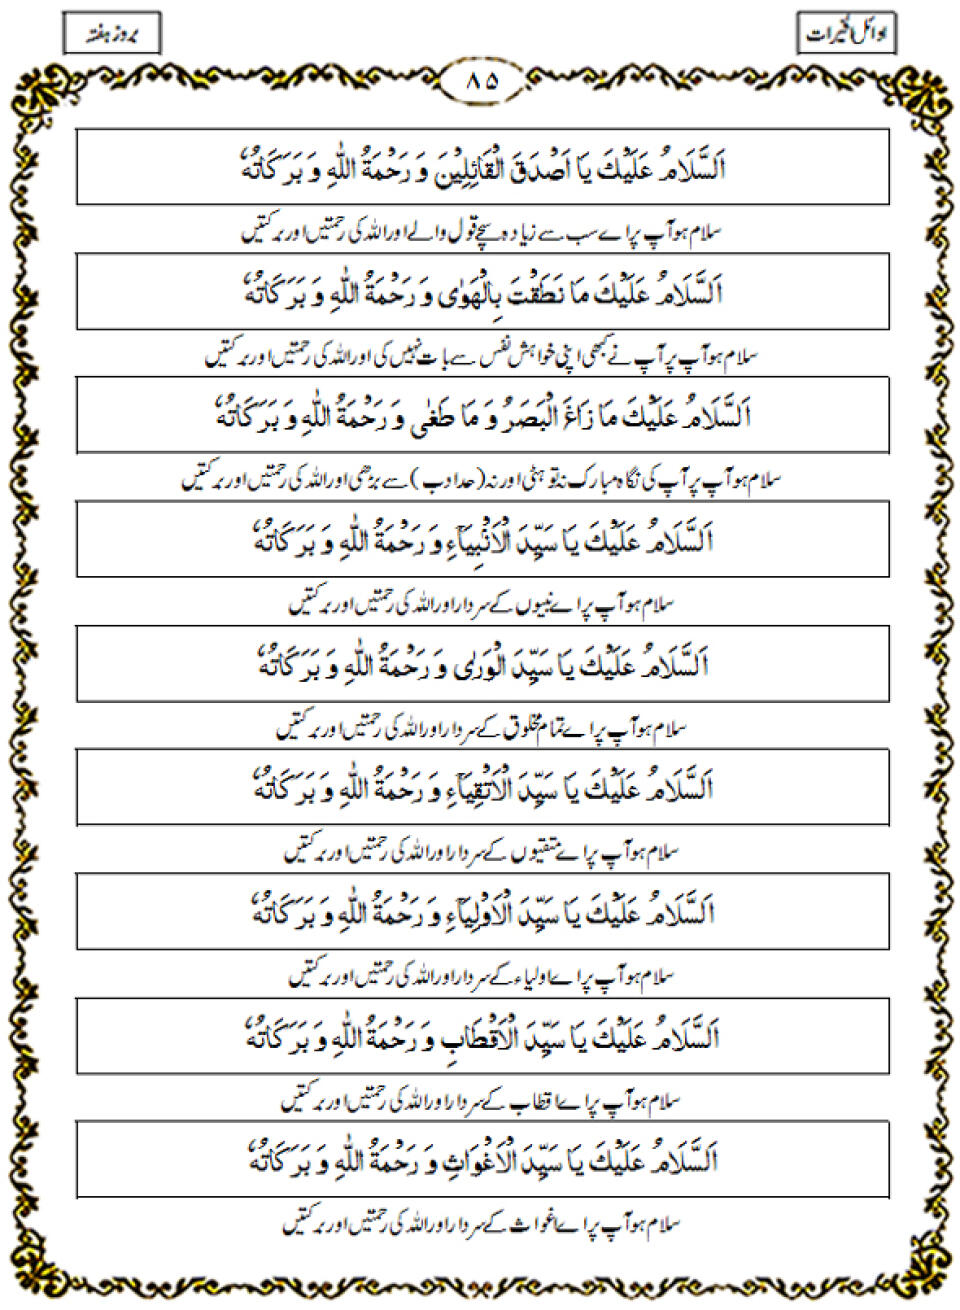 اوائل الخیرات
بروز ہفتہ
۸۵
اَلسَّلَامُ عَلَیْكَ یَا اَصْدَقَ الْقَائِلِیْنَ وَ رَحْمَةُ اللهِ وَ بَرَكَاتُهٗ
سلام ہو آپ پر اے سب سے زیادہ سچے قول والے اور اللہ کی رحمتیں اور برکتیں
اَلسَّلَامُ عَلَیْكَ مَا نَطَقْتَ بِالْهَوٰی وَ رَحْمَةُ اللهِ وَ بَرَكَاتُهٗ
سلام ہو آپ پر آپ نے کبھی اپنی خواہش نفس سے بات نہیں کی اور اللہ کی رحمتیں اور برکتیں
اَلسَّلَامُ عَلَیْكَ مَا زَاغَ الْبَصَرُ وَ مَا طَغٰی وَ رَحْمَةُ اللهِ وَ بَرَكَاتُهٗ
سلام ہو آپ پر آپ کی نگاہ مبارک نہ تو ہٹی اور نہ (حد ادب) سے بڑھی اور اللہ کی رحمتیں اور برکتیں
اَلسَّلَامُ عَلَیْكَ یَا سَیِّدَ الْاَنْبِیَآءِ وَ رَحْمَةُ اللهِ وَ بَرَكَاتُهٗ
سلام ہو آپ پر اے نبیوں کے سردار اور اللہ کی رحمتیں اور برکتیں
اَلسَّلَامُ عَلَیْكَ یَا سَیِّدَ الْوَرٰی وَ رَحْمَةُ اللهِ وَ بَرَكَاتُهٗ
سلام ہو آپ پر اے تمام مخلوق کے سردار اور اللہ کی رحمتیں اور برکتیں
اَلسَّلَامُ عَلَیْكَ یَا سَیِّدَ الْاَتْقِیَآءِ وَ رَحْمَةُ اللهِ وَ بَرَكَاتُهٗ
سلام ہو آپ پر اے متقیوں کے سردار اور اللہ کی رحمتیں اور برکتیں
اَلسَّلَامُ عَلَیْكَ یَا سَیِّدَ الْاَوْلِیَآءِ وَ رَحْمَةُ اللهِ وَ بَرَكَاتُهٗ
سلام ہو آپ پر اے اولیاء کے سردار اور اللہ کی رحمتیں اور برکتیں
اَلسَّلَامُ عَلَیْكَ یَا سَیِّدَ الْاَقْطَابِ وَ رَحْمَةُ اللهِ وَ بَرَكَاتُهٗ
سلام ہو آپ پر اے اقطاب کے سردار اور اللہ کی رحمتیں اور برکتیں
اَلسَّلَامُ عَلَیْكَ یَا سَیِّدَ الْاَغْوَاثِ وَ رَحْمَةُ اللهِ وَ بَرَكَاتُهٗ
سلام ہو آپ پر اے اغواث کے سردار اور اللہ کی رحمتیں اور برکتیں